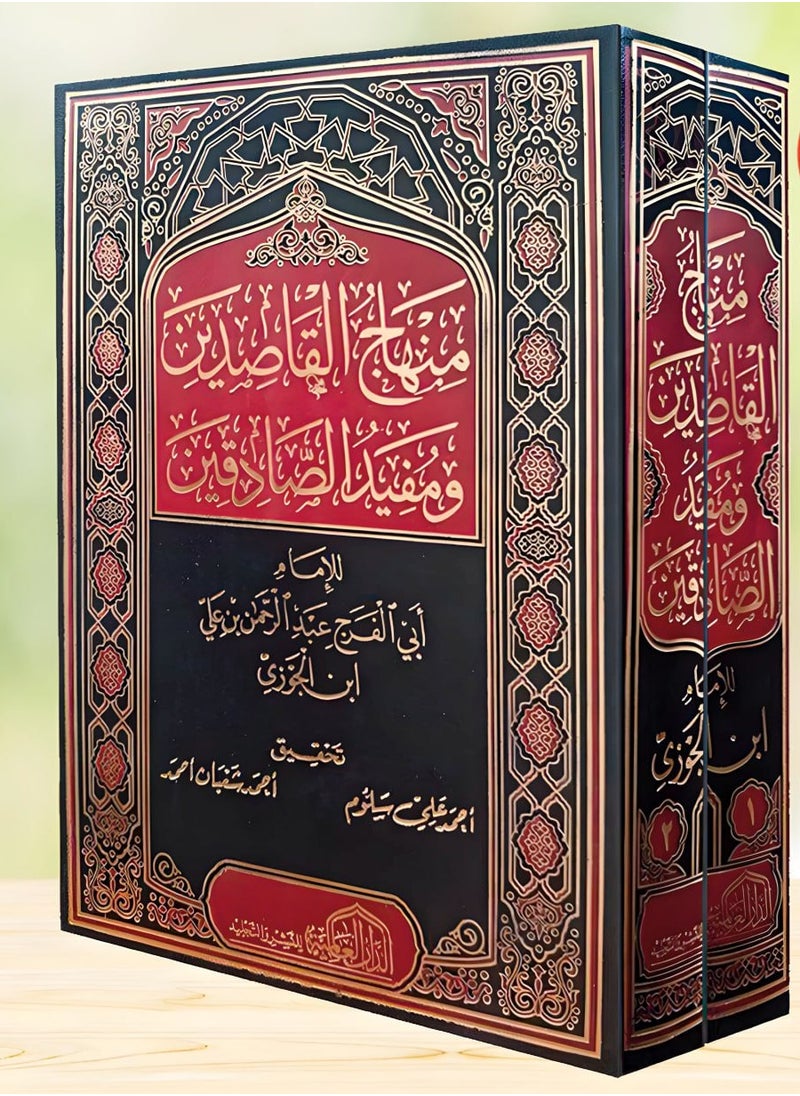 مِنْهَاجُ القَاصِدِينَ
وَمُفِيدُ الصَّادِقِينَ
للإِمَامِ
أَبِي الْفَرَجِ عَبْدِ الرَّحْمَنِ بْنِ عَلِيّ
ابن الجَوْزِيّ
تَحْقِيق
أحمد علي سلوم
أحمد شعبان أحمد
الدَّارُ العَالَمِيَّة للنشر والتجليد
مِنْهَاجُ
القَاصِدِينَ
وَمُفِيدُ
الصَّادِقِينَ
للإِمَامِ
ابن الجَوْزِيّ
١
٢
الدَّارُ العَالَمِيَّة